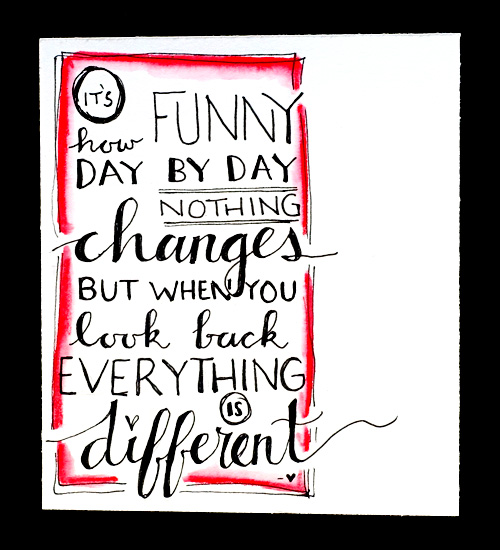 IT'S
how FUNNY
DAY BY DAY
NOTHING
changes
BUT WHEN YOU
look back
EVERYTHING
IS
different